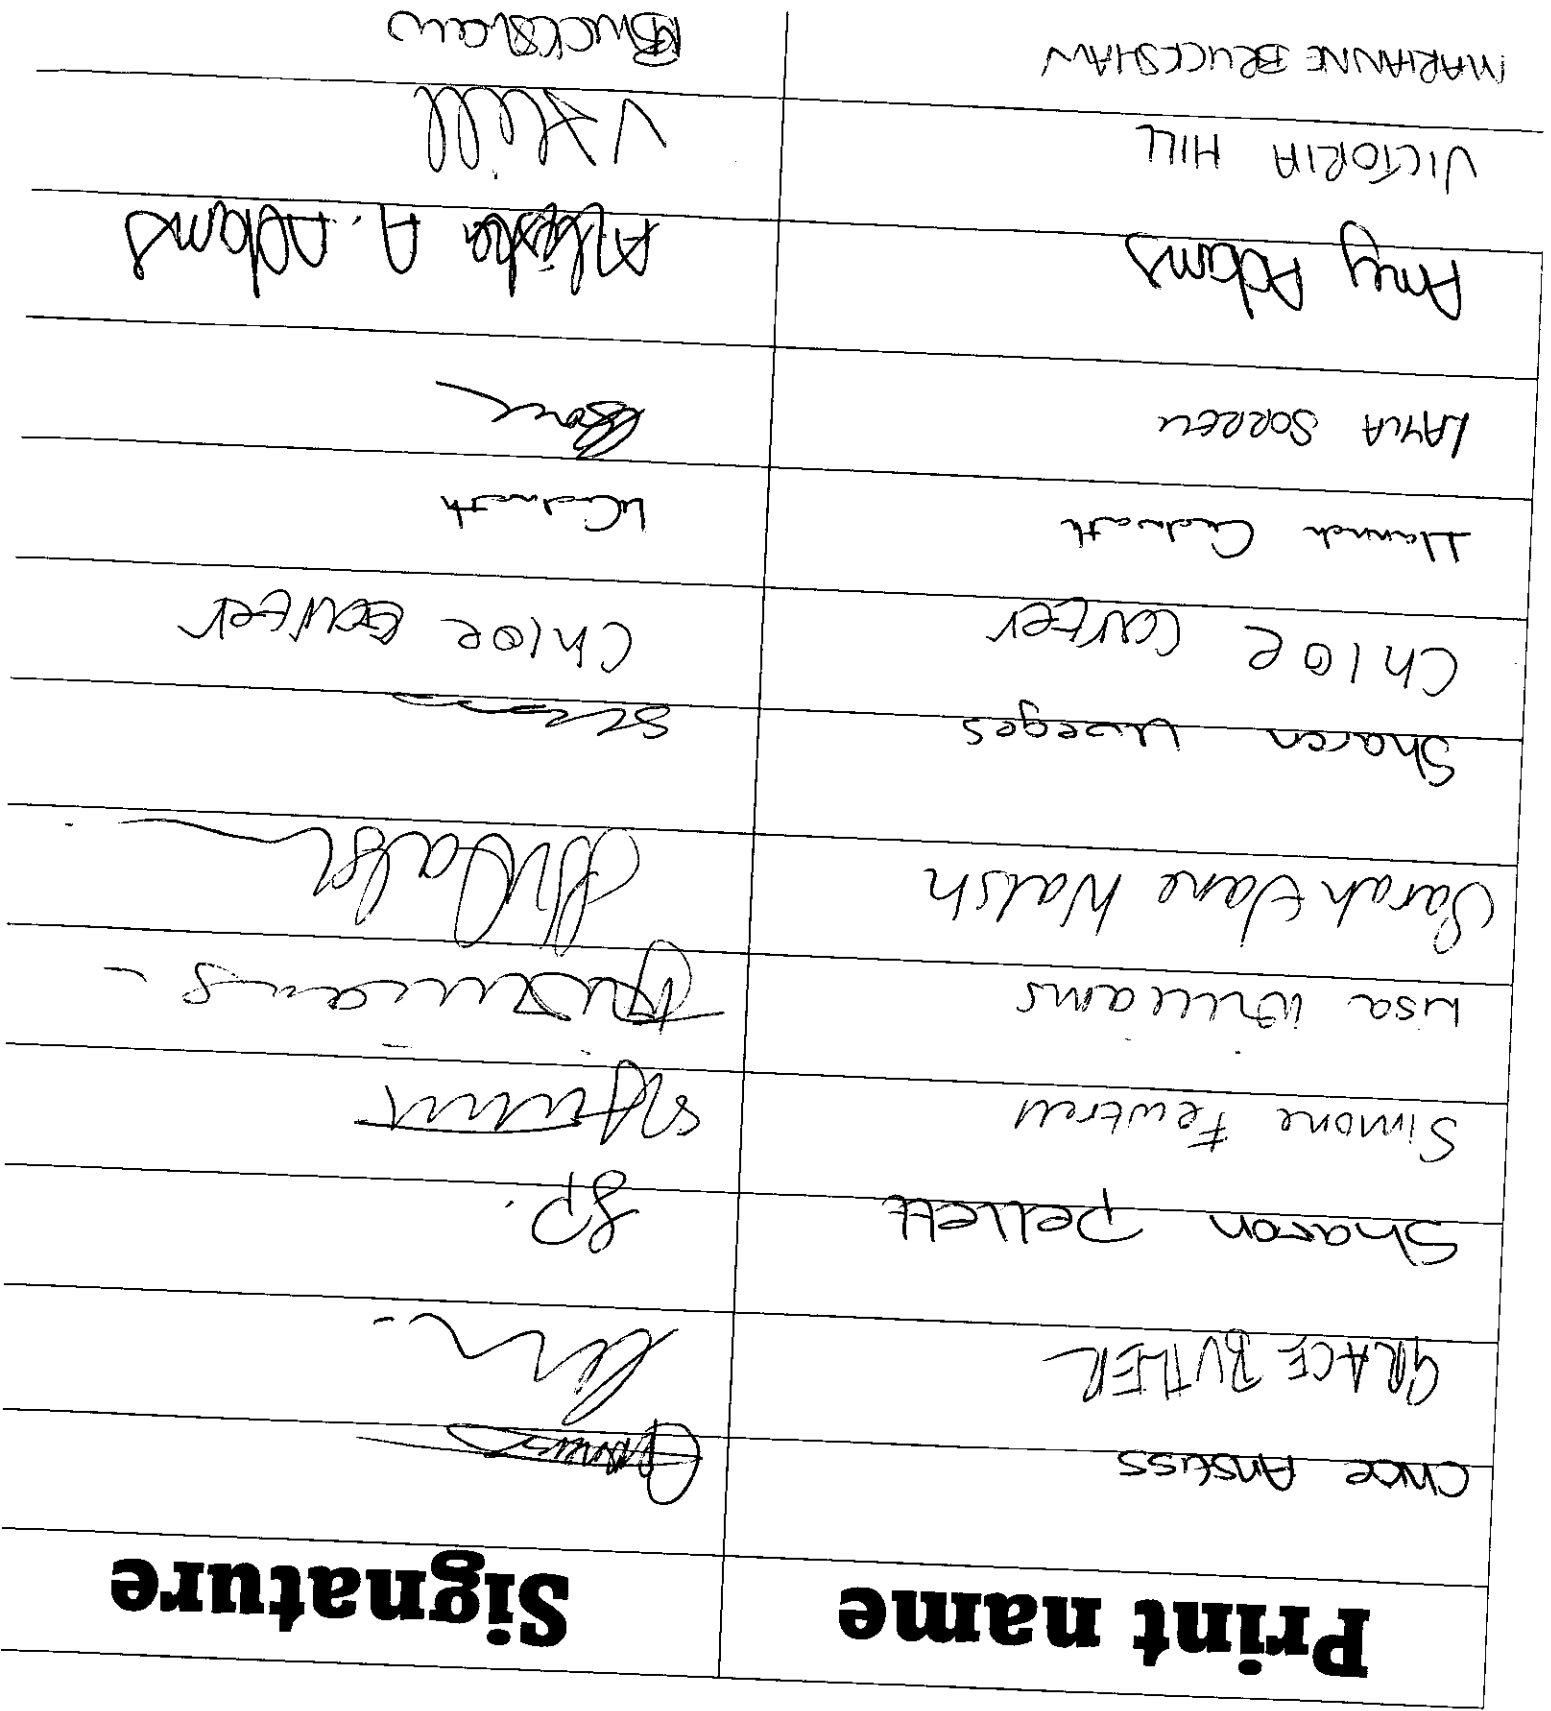 Print name Signature
Chloe Anstiss
GRACE BUTLER
Sharon Pellett SP.
Simone Fewtrell
Lisa Williams
Sarah Jane Walsh
Sharon
Chloe Carter Chloe Carter
Hannah Cudworth HCudworth
LAYLA SORRELL
Amy Adams A. Adams
VICTORIA HILL V Hill
MARIANNE BRUCKSHAW Bruckshaw